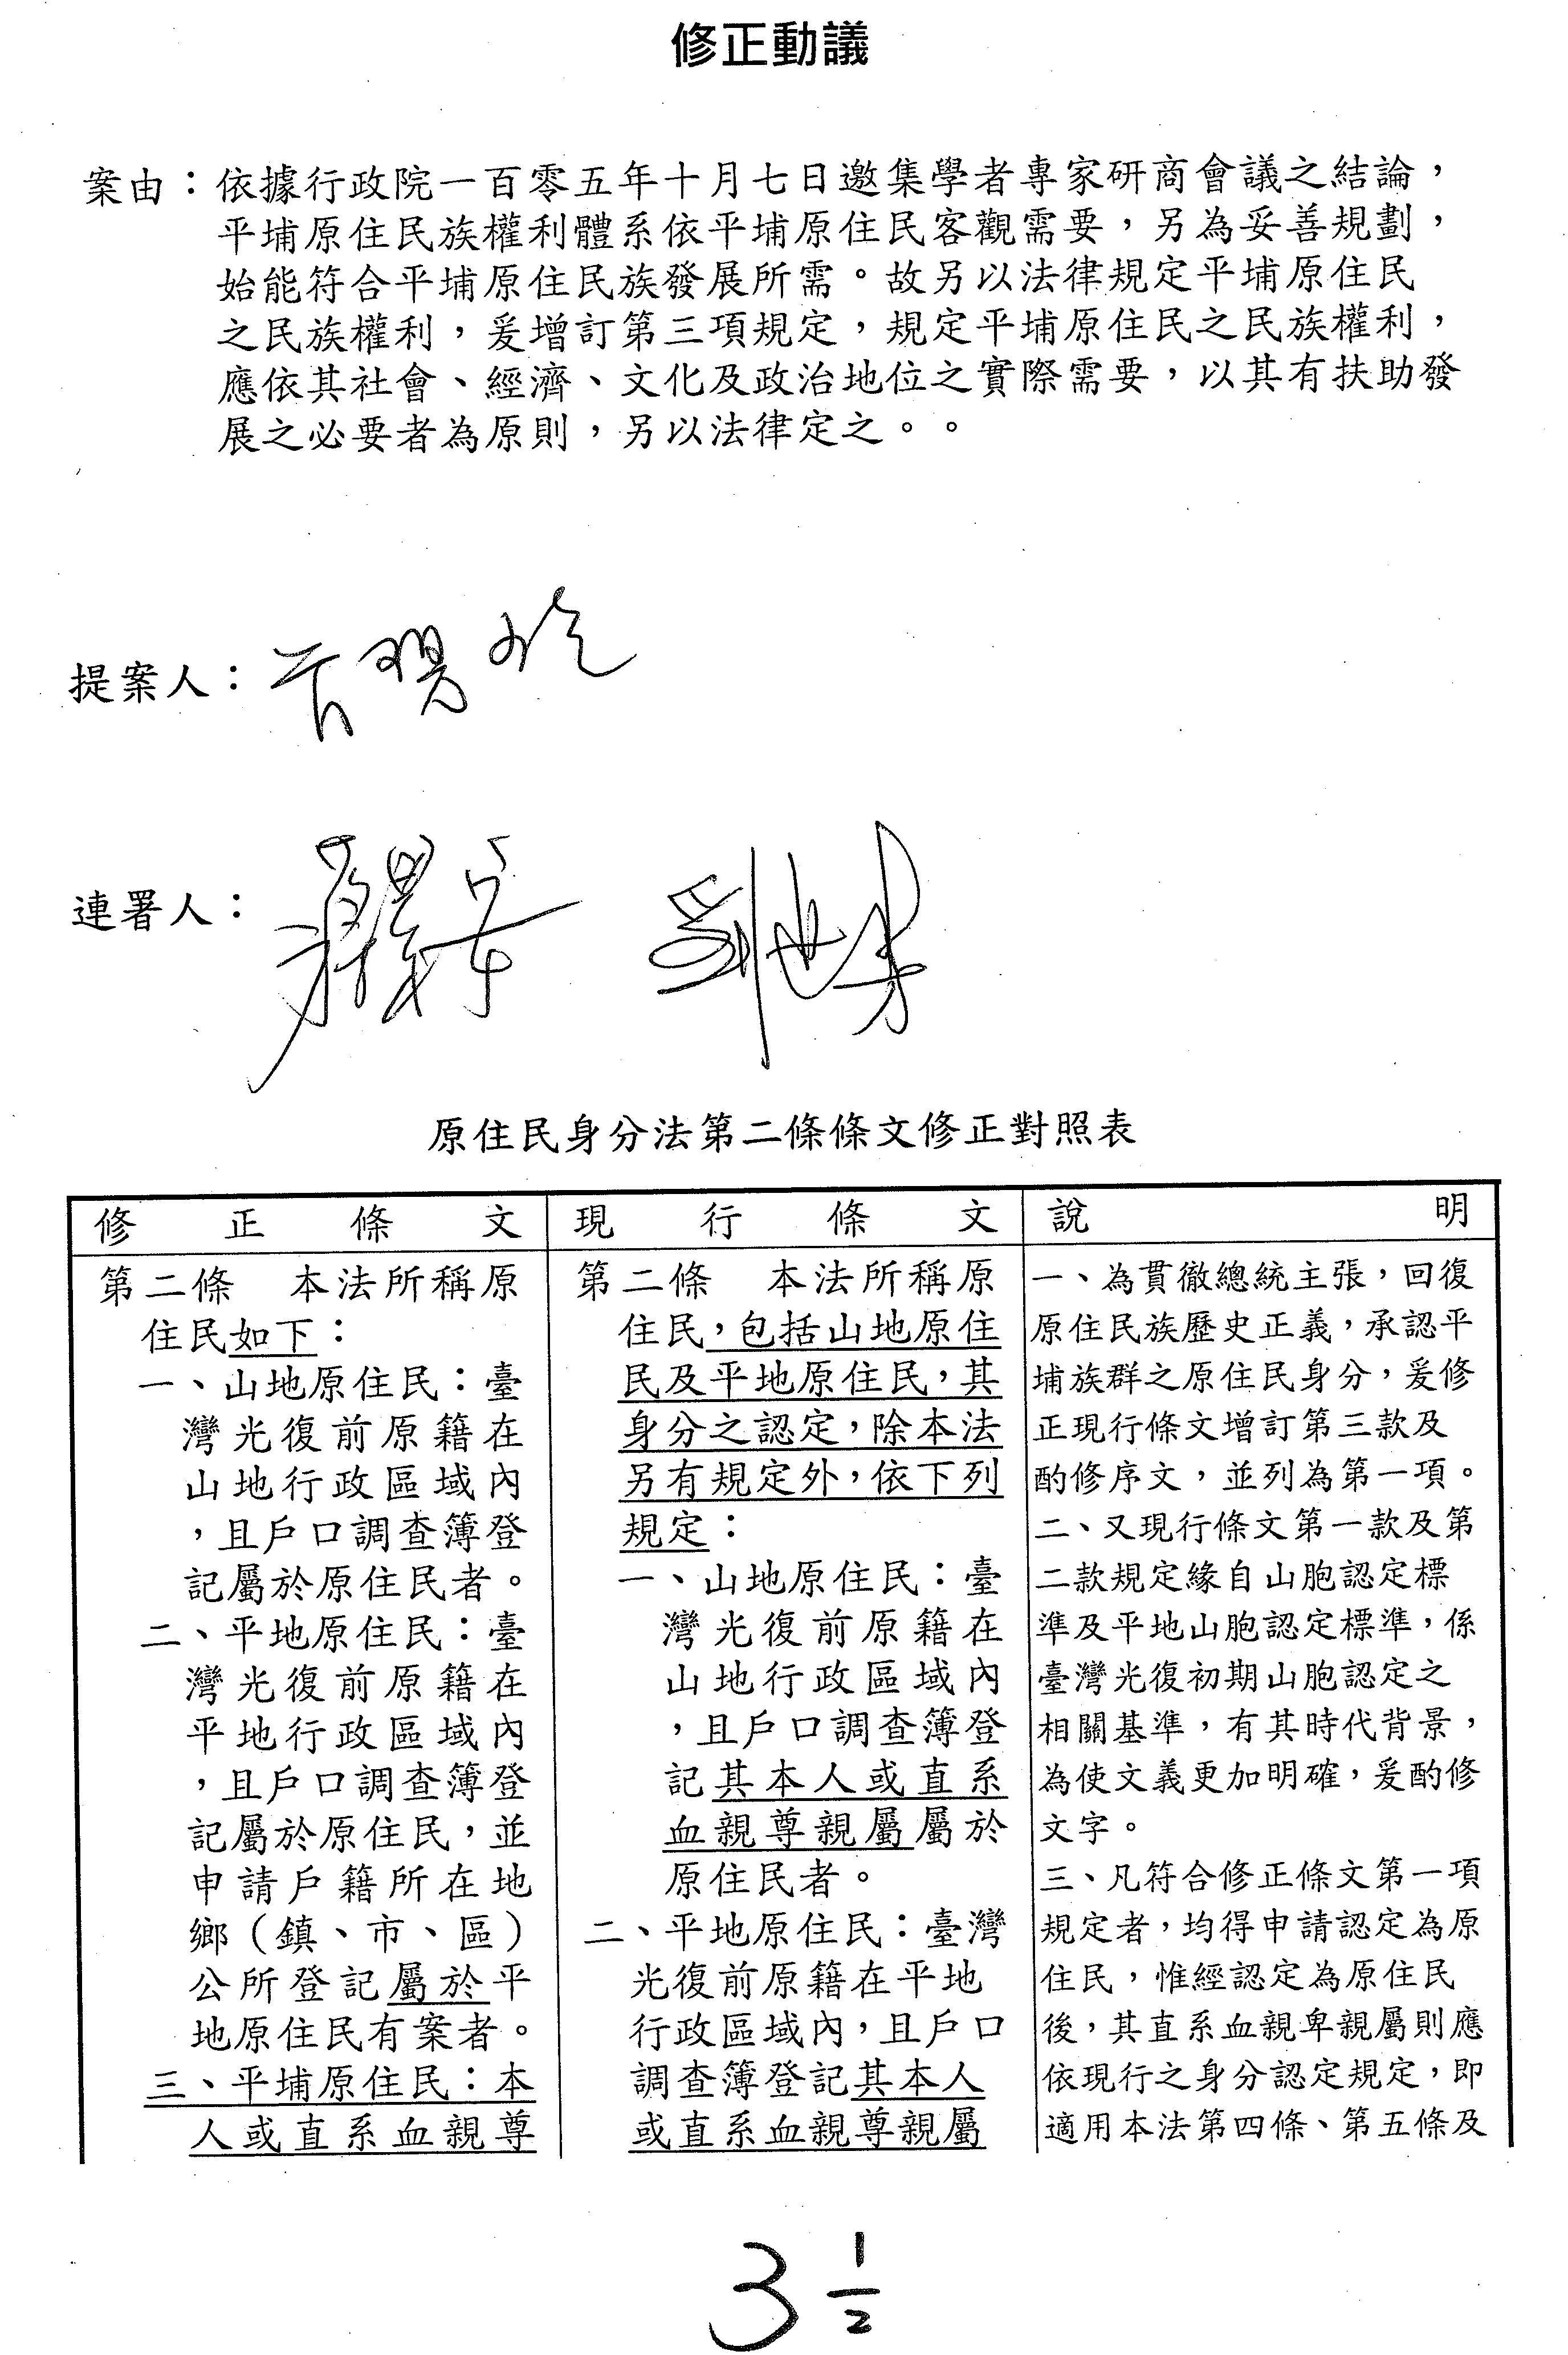 修正動議
案由：依據行政院一百零五年十月七日邀集學者專家研商會議之結論，
平埔原住民族權利體系依平埔原住民客觀需要，另為妥善規劃，
始能符合平埔原住民族發展所需。故另以法律規定平埔原住民
之民族權利，爰增訂第三項規定，規定平埔原住民之民族權利，
應依其社會、經濟、文化及政治地位之實際需要，以其有扶助發
展之必要者為原則，另以法律定之。。
提案人：
連署人：
原住民身分法第二條條文修正對照表
修正條文
第二條　本法所稱原
住民如下：
一、山地原住民：臺
灣光復前原籍在
山地行政區域內
，且戶口調查簿登
記屬於原住民者。
二、平地原住民：臺
灣光復前原籍在
平地行政區域內
，且戶口調查簿登
記屬於原住民，並
申請戶籍所在地
鄉（鎮、市、區）
公所登記屬於平
地原住民有案者。
三、平埔原住民：本
人或直系血親尊
現行條文
第二條　本法所稱原
住民，包括山地原住
民及平地原住民，其
身分之認定，除本法
另有規定外，依下列
規定：
一、山地原住民：臺
灣光復前原籍在
山地行政區域內
，且戶口調查簿登
記其本人或直系
血親尊親屬屬於
原住民者。
二、平地原住民：臺灣
光復前原籍在平地
行政區域內，且戶口
調查簿登記其本人
或直系血親尊親屬
說明
一、為貫徹總統主張，回復
原住民族歷史正義，承認平
埔族群之原住民身分，爰修
正現行條文增訂第三款及
酌修序文，並列為第一項。
二、又現行條文第一款及第
二款規定緣自山胞認定標
準及平地山胞認定標準，係
臺灣光復初期山胞認定之
相關基準，有其時代背景，
為使文義更加明確，爰酌修
文字。
三、凡符合修正條文第一項
規定者，均得申請認定為原
住民，惟經認定為原住民
後，其直系血親卑親屬則應
依現行之身分認定規定，即
適用本法第四條、第五條及
3 1/2